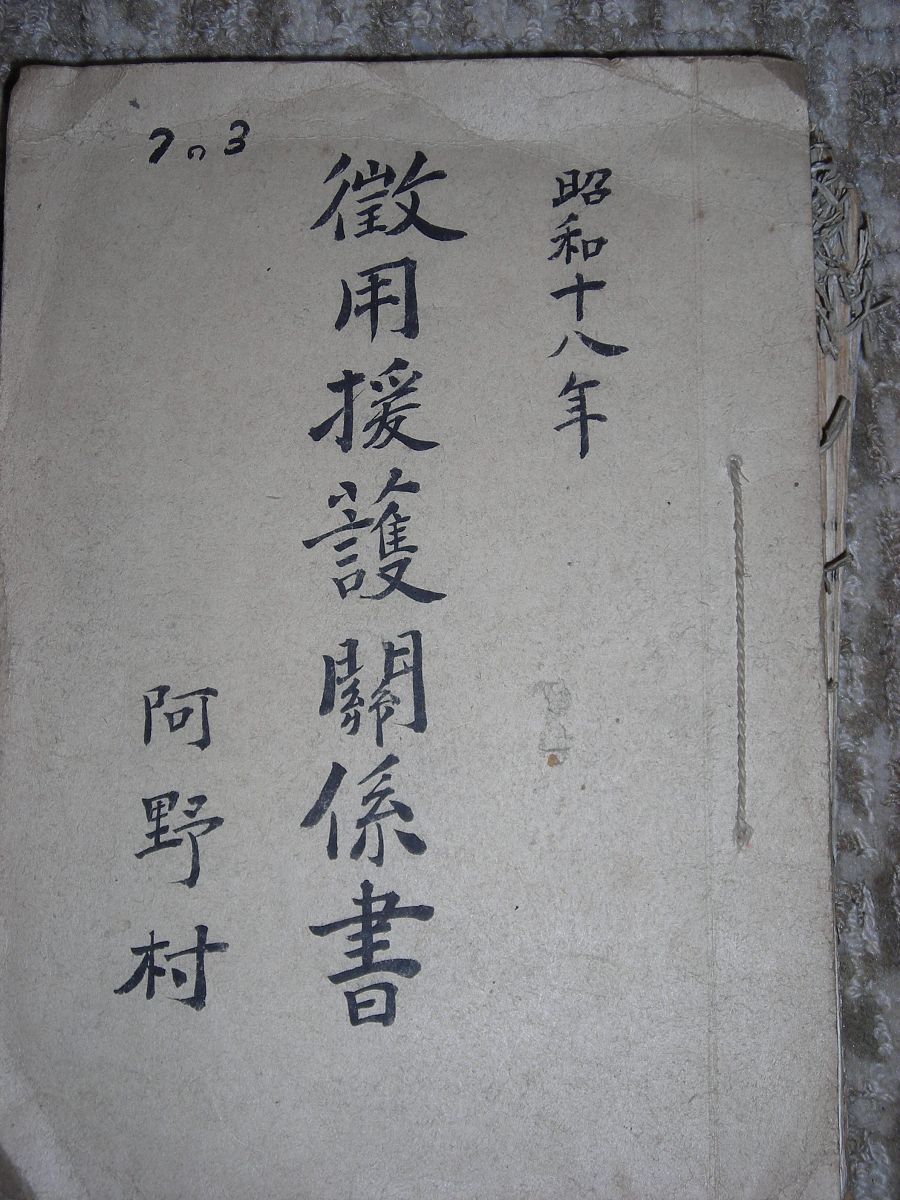 昭和十八年
徵用援護關係書
阿野村
7の3